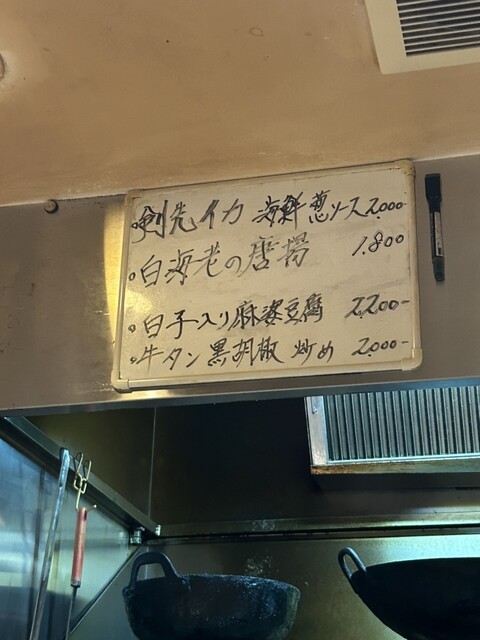 ・剣先イカ 海鮮葱ソース 2,000-
・白海老の唐揚 1,800
・白子入り麻婆豆腐 2,200-
・牛タン黒胡椒炒め 2,000-